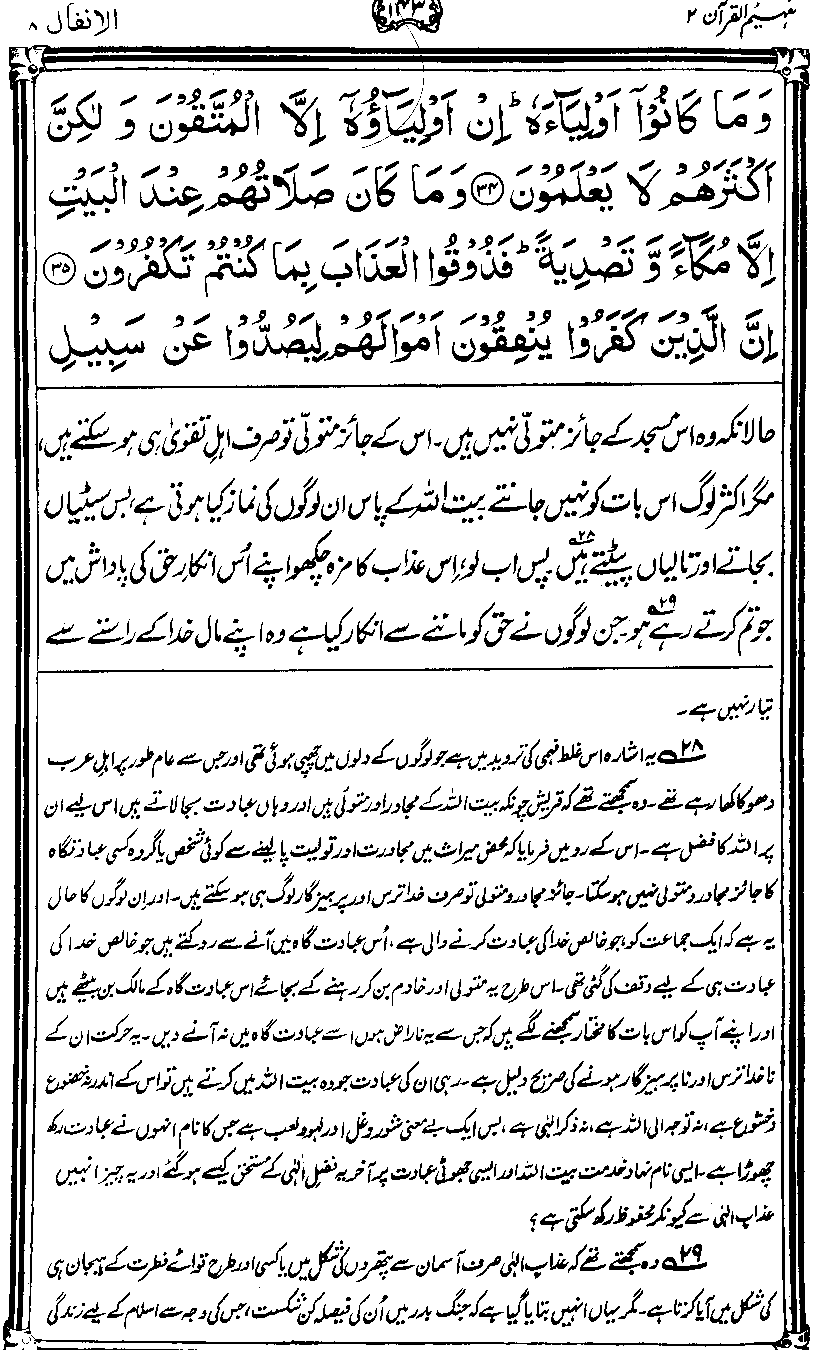 تفہیم القرآن ۲
۱۴۳
الانفال ۸
وَمَا كَانُوْٓا اَوْلِيَآءَهٗ ؕ اِنْ اَوْلِيَآؤُهٗٓ اِلَّا الْمُتَّقُوْنَ وَ لٰكِنَّ
اَكْثَرَهُمْ لَا يَعْلَمُوْنَ ۳۴ وَمَا كَانَ صَلَاتُهُمْ عِنْدَ الْبَيْتِ
اِلَّا مُكَآءً وَّ تَصْدِيَةً ؕ فَذُوْقُوا الْعَذَابَ بِمَا كُنْتُمْ تَكْفُرُوْنَ ۳۵
اِنَّ الَّذِيْنَ كَفَرُوْا يُنْفِقُوْنَ اَمْوَالَهُمْ لِيَصُدُّوْا عَنْ سَبِيْلِ
حالانکہ وہ اس مسجد کے جائز متولّی نہیں ہیں۔ اس کے جائز متولّی تو صرف اہلِ تقویٰ ہی ہو سکتے ہیں،
مگر اکثر لوگ اس بات کو نہیں جانتے بیت اللہ کے پاس ان لوگوں کی نماز کیا ہوتی ہے، بس سیٹیاں
بجاتے اور تالیاں پیٹتے ہیں۲۸۔ پس اب لو، اِس عذاب کا مزہ چکھو اپنے اُس انکارِ حق کی پاداش میں
جو تم کرتے رہے ہو۲۹۔ جن لوگوں نے حق کو ماننے سے انکار کیا ہے وہ اپنے مال خدا کے راستے سے
تیار نہیں ہے۔
۲۸ یہ اشارہ اس غلط فہمی کی تردید میں ہے جو لوگوں کے دلوں میں چھپی ہوئی تھی اور جس سے عام طور پر اہلِ عرب
دھوکا کھا رہے تھے۔ وہ سمجھتے تھے کہ قریش چونکہ بیت اللہ کے مجاور اور متولّی ہیں اور وہاں عبادت بجا لاتے ہیں اس لیے ان
پر اللہ کا فضل ہے۔ اس کے رد میں فرمایا کہ محض میراث میں مجاورت اور تولیت پا لینے سے کوئی شخص یا گروہ کسی عبادتگاہ
کا جائز مجاور و متولی نہیں ہو سکتا۔ جائز مجاور و متولی تو صرف خدا ترس اور پرہیز گار لوگ ہی ہو سکتے ہیں۔ اور اِن لوگوں کا حال
یہ ہے کہ ایک جماعت کو، جو خالص خدا کی عبادت کرنے والی ہے، اُس عبادت گاہ میں آنے سے روکتے ہیں جو خالص خدا کی
عبادت ہی کے لیے وقف کی گئی تھی۔ اس طرح یہ متولی اور خادم بن کر رہنے کے بجائے اس عبادت گاہ کے مالک بن بیٹھے ہیں
اور اپنے آپ کو اس بات کا مختار سمجھنے لگے ہیں کہ جس سے یہ ناراض ہوں اسے عبادت گاہ میں نہ آنے دیں۔ یہ حرکت ان کے
ناخدا ترس اور ناپرہیز گار ہونے کی صریح دلیل ہے۔ رہی ان کی عبادت جو وہ بیت اللہ میں کرتے ہیں تو اس کے اندر نہ خضوع
و خشوع ہے، نہ توجہ الی اللہ ہے، نہ ذکر الٰہی ہے، بس ایک بے معنی شور و غل اور لہو و لعب ہے جس کا نام انہوں نے عبادت رکھ
چھوڑا ہے۔ ایسی نام نہاد خدمت بیت اللہ اور ایسی جھوٹی عبادت پر آخر یہ فضلِ الٰہی کے مستحق کیسے ہو گئے اور یہ چیز انہیں
عذاب الٰہی سے کیونکر محفوظ رکھ سکتی ہے؟
۲۹ وہ سمجھتے تھے کہ عذاب الٰہی صرف آسمان سے پتھروں کی شکل میں یا کسی اور طرح قوائے فطرت کے ہیجان ہی
کی شکل میں آیا کرتا ہے۔ مگر یہاں انہیں بتایا گیا ہے کہ جنگ بدر میں اُن کی فیصلہ کن شکست، جس کی وجہ سے اسلام کے لیے زندگی